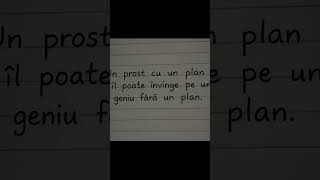 Un prost cu un plan
îl poate învinge pe un
geniu fără un plan.